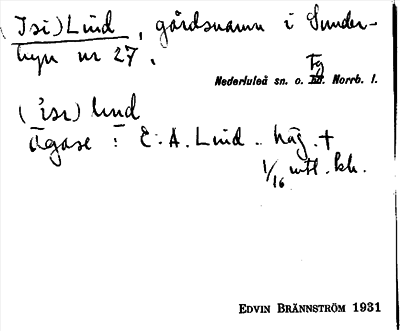 (Isi)Lind, gårdsnamn i Sunder-
byn nr 27.
Fg
Nederluleå sn. o. Norrb. l.
('isi) lind
Ägare: E. A. Lind.. häg. +
1/16 mtl. kh.
EDVIN BRÄNNSTRÖM 1931